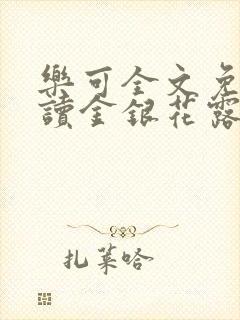 樂可全文免
讀金銀花露
扎萊哈